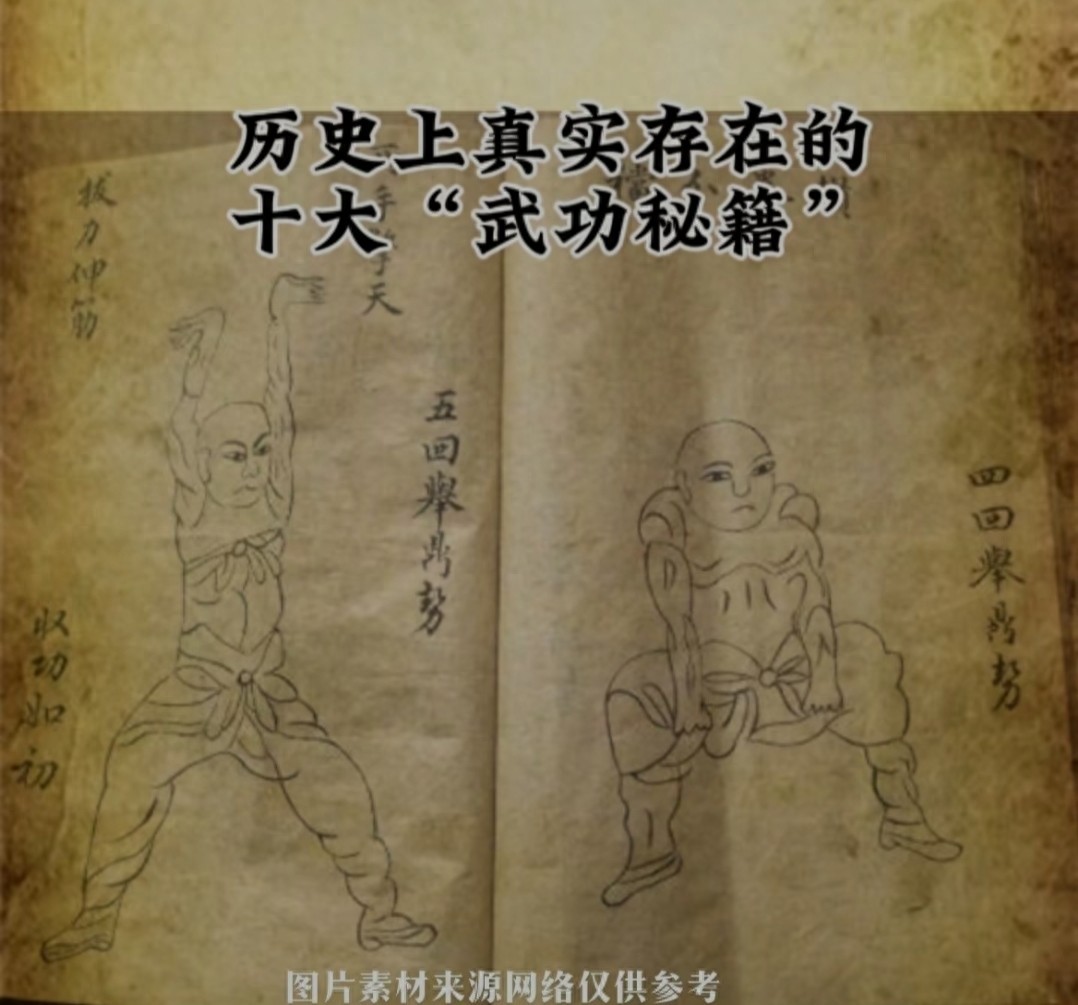 历史上真实存在的
十大“武功秘籍”
拔力伸筋
手擎天
五回舉鼎勢
收功如初
四回舉鼎勢
图片素材来源网络仅供参考